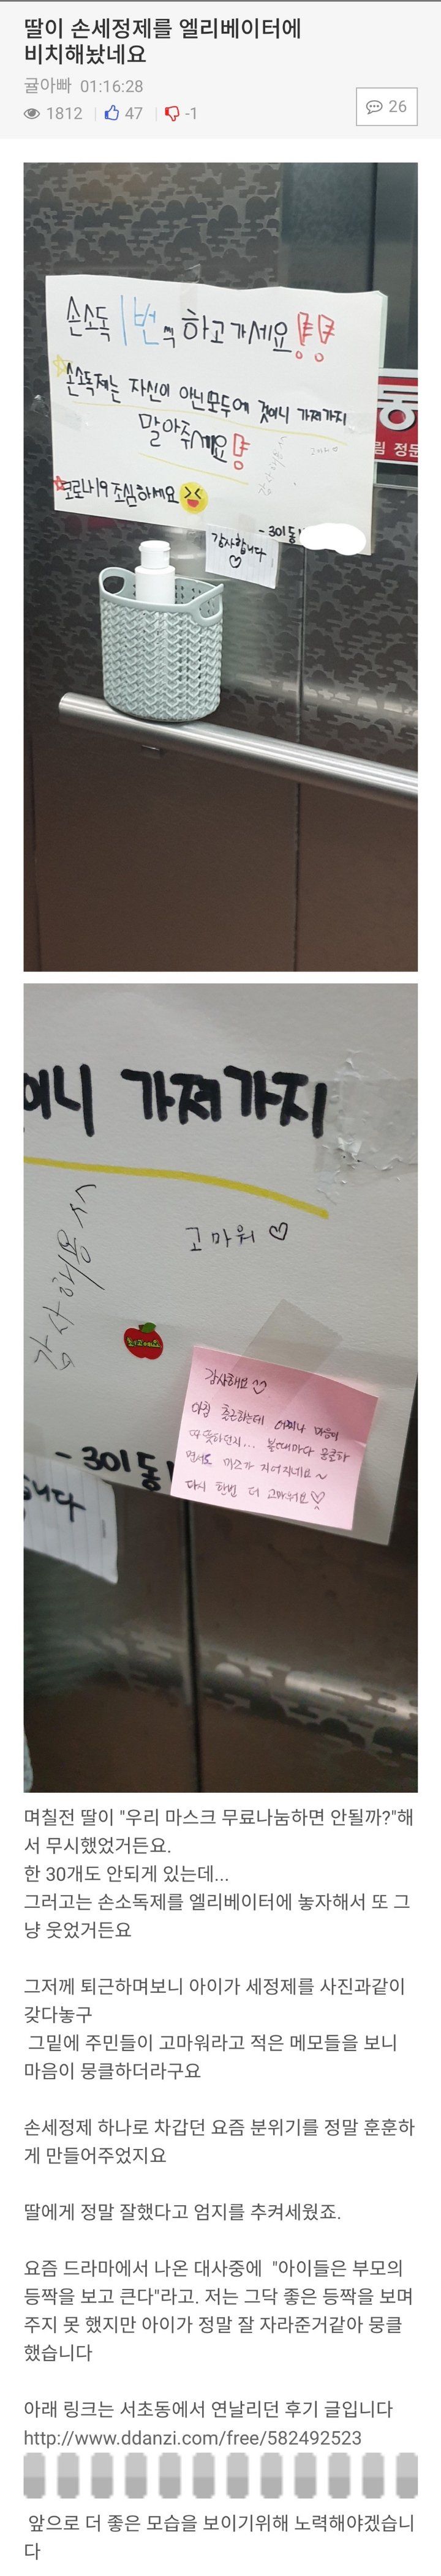 딸이 손세정제를 엘리베이터에
비치해놨네요
귤아빠 01:16:28
1812 47 -1
26
손소독 1번씩 하고가세요!!
손소독제는 자신이 아닌모두에 것이니 가져가지
말아주세요!
감사해용^^
고마워
코로나19 조심하세요
- 301동
감사합니다
림 정문
이니 가져가지
고마워
감사해용^^
감사해요
아침 출근하는데 어찌나 마음이
따뜻하던지... 볼때마다 뭉클하
면서 미소가 지어지네요~
다시 한번 더 고마워요
- 301동
니다
며칠전 딸이 "우리 마스크 무료나눔하면 안될까?"해
서 무시했었거든요.
한 30개도 안되게 있는데...
그러고는 손소독제를 엘리베이터에 놓자해서 또 그
냥 웃었거든요
그저께 퇴근하며보니 아이가 세정제를 사진과같이
갖다놓구
그밑에 주민들이 고마워라고 적은 메모들을 보니
마음이 뭉클하더라구요
손세정제 하나로 차갑던 요즘 분위기를 정말 훈훈하
게 만들어주었지요
딸에게 정말 잘했다고 엄지를 추켜세웠죠.
요즘 드라마에서 나온 대사중에 "아이들은 부모의
등짝을 보고 큰다"라고. 저는 그닥 좋은 등짝을 보며
주지 못 했지만 아이가 정말 잘 자라준거같아 뭉클
했습니다
아래 링크는 서초동에서 연날리던 후기 글입니다
http://www.ddanzi.com/free/582492523
앞으로 더 좋은 모습을 보이기위해 노력해야겠습니
다